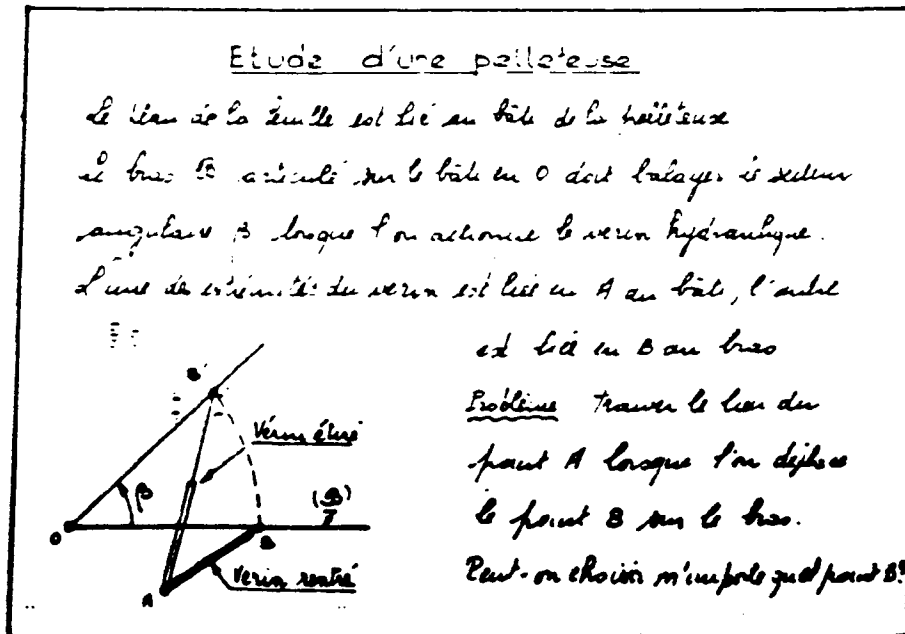 Etude d'une pelleteuse
Le plan de la feuille est lié au bâti de la pelleteuse
articulé sur le bâti en O doit balayer le secteur
angulaire β lorsque l'on actionne le verin hydraulique.
L'une des extrémités du verin est liée en A au bâti, l'autre
est liée en B au bras
Problème Trouver le lieu du
point A lorsque l'on déplace
le point B sur le bras.
Peut-on choisir n'importe quel point B?
B'
Vérin étiré
β
O
B
A
Verin rentré